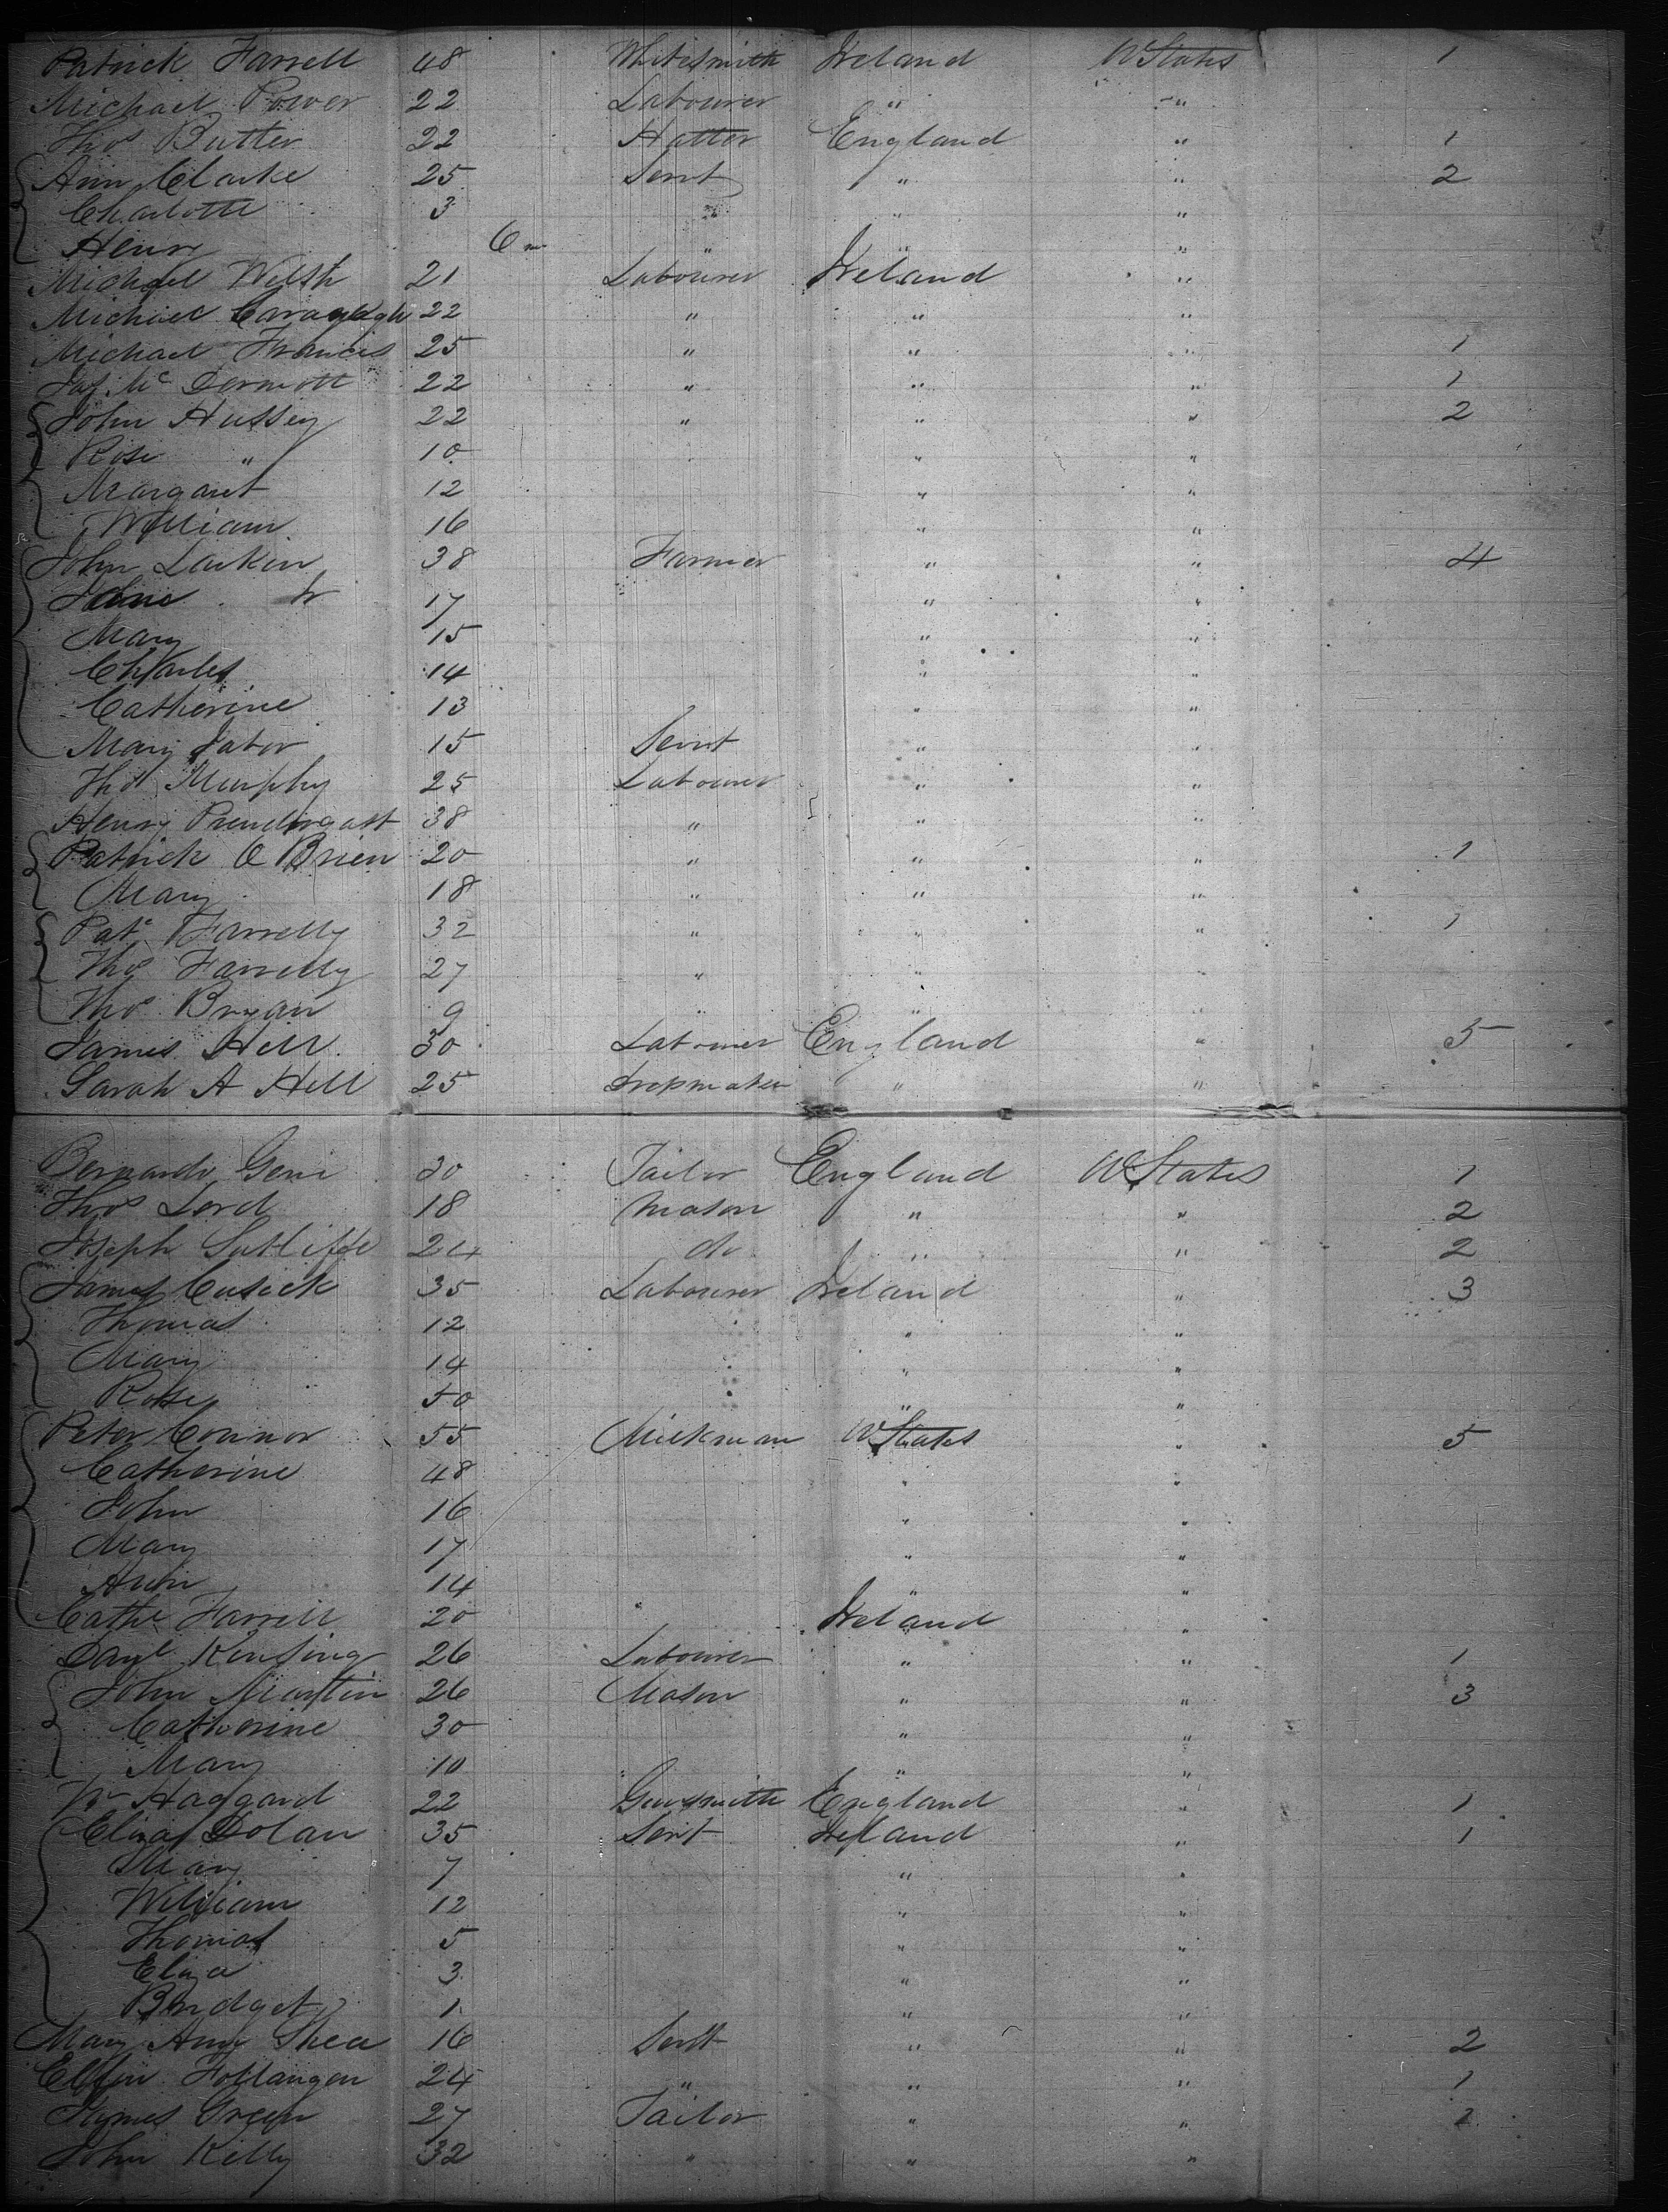 Patrick Farrell 48 Whitesmith Ireland U States 1
Michael Power 22 Labourer " "
Thos Butler 22 Hatter England " 1
Ann Clarke 25 Servt " " 2
Charlotte 3 " " "
Henry 6 m " " "
Michael Welsh 21 Labourer Ireland "
Michael Cavanagh 22 " " "
Michael Francis 25 " " " 1
Jas McDermott 22 " " " 1
John Hussey 22 " " " 2
Rose " 10 " "
Margaret 12 " "
William 16 " "
John Larkin 38 Farmer " " 4
Jane 17 " "
Mary 15 " "
Charles 14 " "
Catherine 13 " "
Mary 15 Servt " "
Thos Murphy 25 Labourer " "
Henry Prendergast 38 " " "
Patrick O Brien 20 " " " 1
Mary 18 " " "
Patk Farrelly 32 " " " 1
Thos Farrelly 27 " " "
Thos Bryan 9 " " "
James Hill 30 Labourer England " 5
Sarah A Hill 25 " "
Bernardo 30 Tailor England U States 1
Thos Lord 18 Mason " " 2
Joseph Sutliffe 24 do " " 2
James Cusick 35 Labourer Ireland " 3
Thomas 12 " "
Mary 14 " "
Rose 50 " "
Peter Connor 55 Milkman U States " 5
Catherine 48 " "
John 16 " "
Mary 17 " "
Ann 14 " "
Cathe Farrell 20 " Ireland "
Danl 26 Labourer " " 1
John Martin 26 Mason " " 3
Catherine 30 " "
Mary 10 " "
Wm Haggard 22 Gunsmith England " 1
Eliza Dolan 35 Servt Ireland " 1
Mary 7 " "
William 12 " "
Thomas 5 " "
Eliza 3 " "
Bridget 1 " "
Mary Ann Shea 16 Servt " " 2
Ellen 24 " " " 1
James Green 27 Tailor " " 2
John Kelly 32 " " "